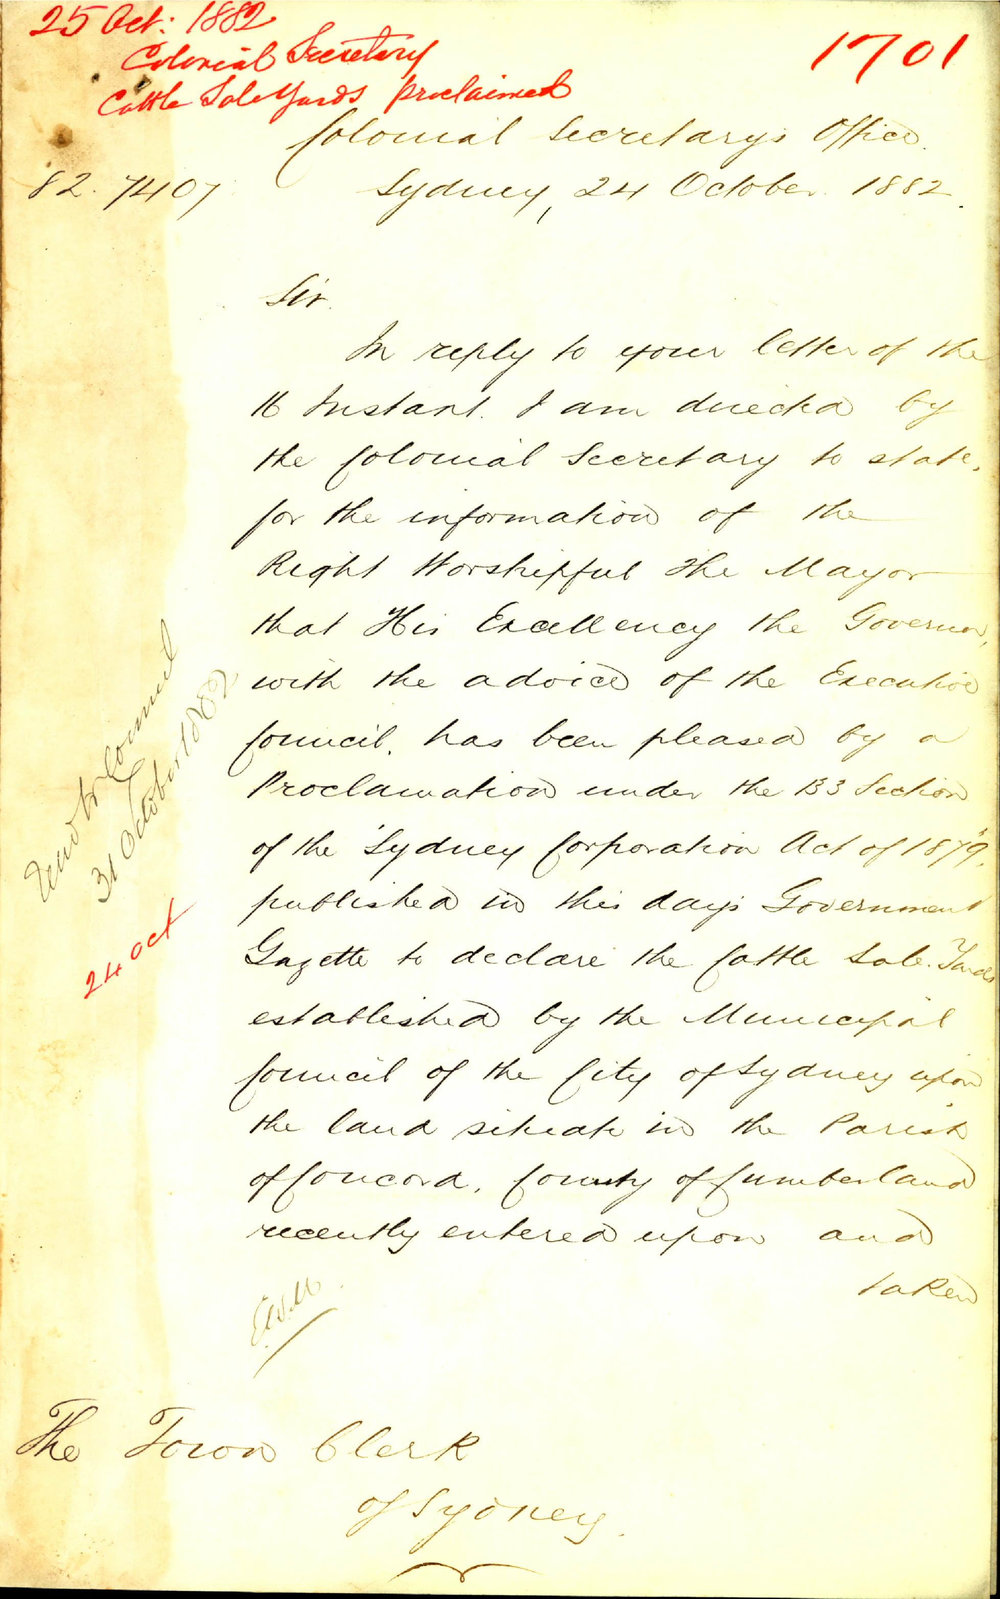 25 Oct: 1882
Colonial Secretary
Cattle Sale Yards proclaimed
1701
Colonial Secretary's Office.
82.7407
Sydney, 24 October. 1882.
Sir.
In reply to your letter of the
16 Instant. I am directed by
the Colonial Secretary to state,
for the information of the
Right Worshipful the Mayor
that His Excellency the Governor,
with the advice of the Executive
Council, has been pleased by a
Proclamation under the 133 Section
of the "Sydney Corporation Act of 1879",
published in this day's Government
Gazette to declare the Cattle Sale.Yards
established by the Municipal
Council of the City of Sydney upon
the land situate in the Parish
of Concord, County of Cumberland
recently entered upon and
taken
Read in Council
31 October 1882
24 Oct
The Town Clerk
of Sydney.